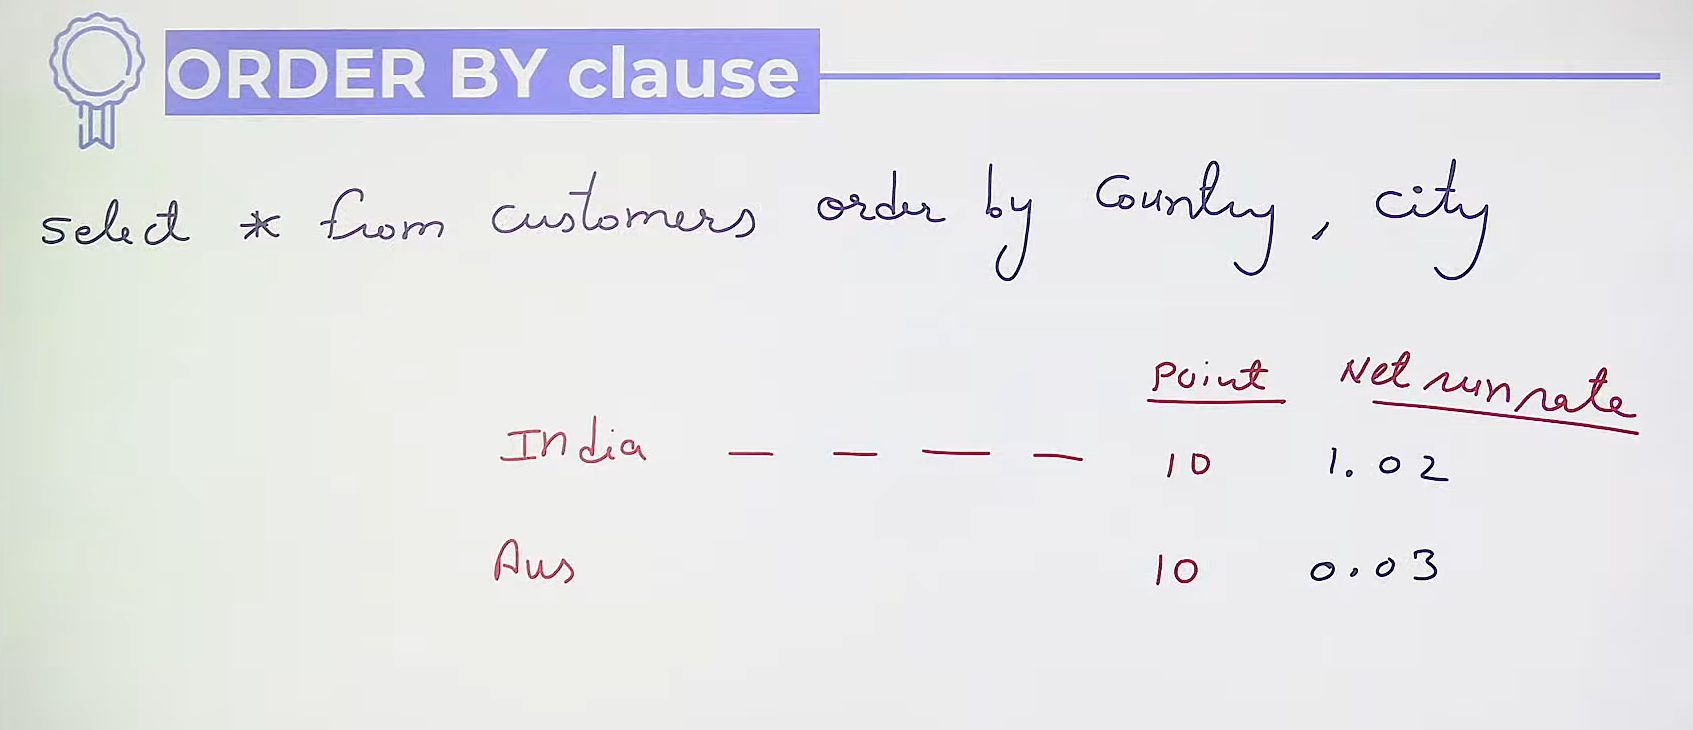 ORDER BY clause
select * from customers order by Country, city
Point Net runrate
India — — — — 10 1.02
Aus 10 0.03